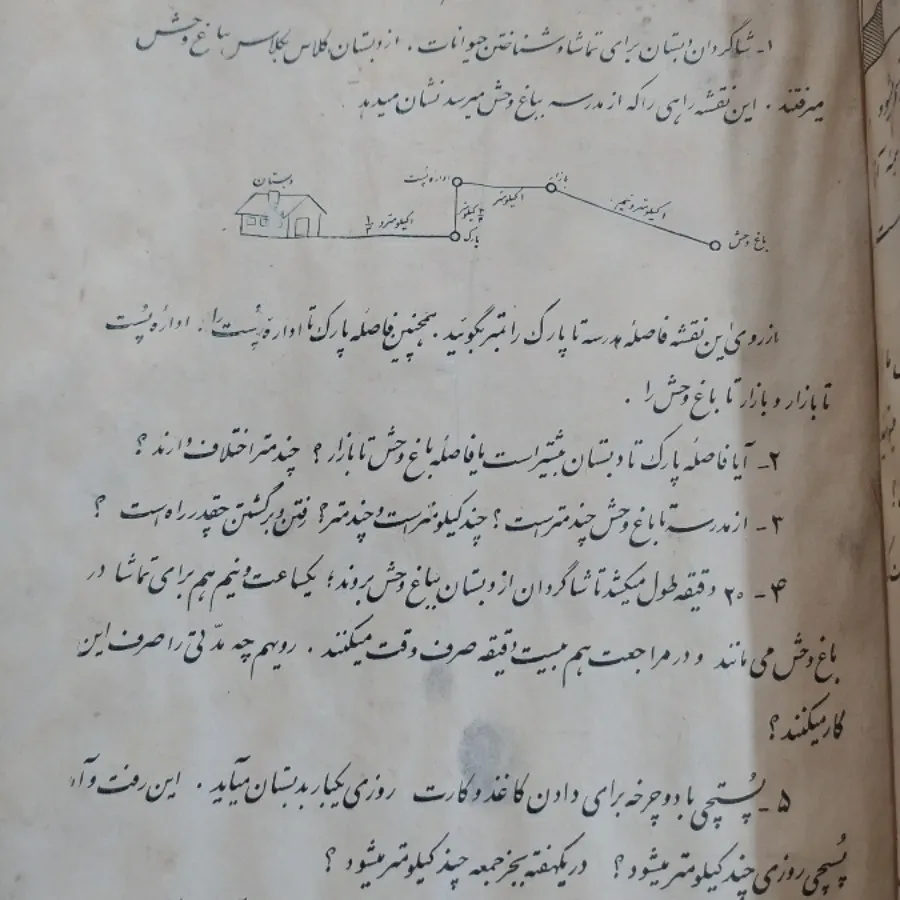 ۱ـ شاگردان دبستان برای تماشا و شناختن حیوانات . از دبستان کلاس بکلاس بباغ وحش
میرفتند . این نقشه راهی را که از مدرسه بباغ وحش میرسد نشان میدهد
دبستان
اداره پست
بازار
۱ کیلومتر
۱ کیلومتر و نیم
باغ وحش
کیلومتر
پارک
۱ کیلومتر و ½
از روی این نقشه فاصلهٔ مدرسه تا پارک را بمتر بگوئید . همچنین فاصلهٔ پارک تا ادارهٔ پُست را . ادارهٔ پُست
تا بازار و بازار تا باغ وحش را .
۲ـ آیا فاصلهٔ پارک تا دبستان بیشتر است یا فاصلهٔ باغ وحش تا بازار ؟ چند متر اختلاف دارند ؟
۳ـ از مدرسه تا باغ وحش چند متر است ؟ چند کیلومتر است و چند متر ؟ رفتن و برگشتن چقدر راه است ؟
۴ـ ۲۰ دقیقه طول میکشد تا شاگردان از دبستان بباغ وحش بروند ؛ یکساعت و نیم هم برای تماشا در
باغ وحش می مانند و در مراجعت هم بیست دقیقه صرف وقت میکنند . رویهم چه مدّتی را صرف این
کار میکنند ؟
۵ـ پُستچی با دوچرخه برای دادن کاغذ و کارت روزی یکبار بدبستان میآید . این رفت و آ
پُستچی روزی چند کیلومتر میشود ؟ در یکهفته بجز جمعه چند کیلومتر میشود ؟